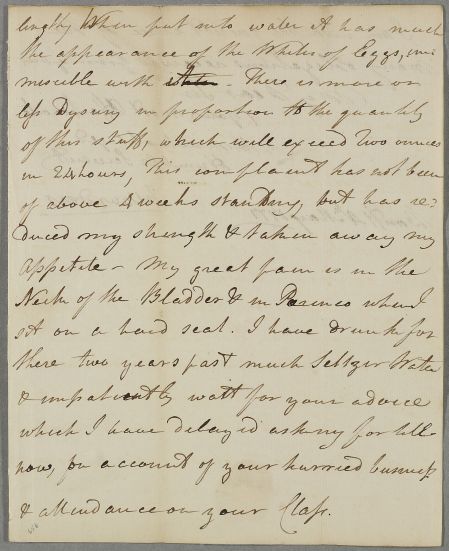 length When put into water it has much
the appearance of the Whites of Eggs, im
miscible with water. There is more or
less Dysury in proportion to the quantity
of this stuff, which will exceed Two ounces
in 24 hours, This complaint has not been
of above 4 weeks standing, but has re=
duced my strength & taken away my
appetite - My great pain is in the
Neck of the Bladder & in Perineo when I
sit on a hard seat. I have drunk for
these two years past much Seltzer Water
& impatiently wait for your advice
which I have delayed asking for till
now, on account of your hurried business
& attendance on your Class.